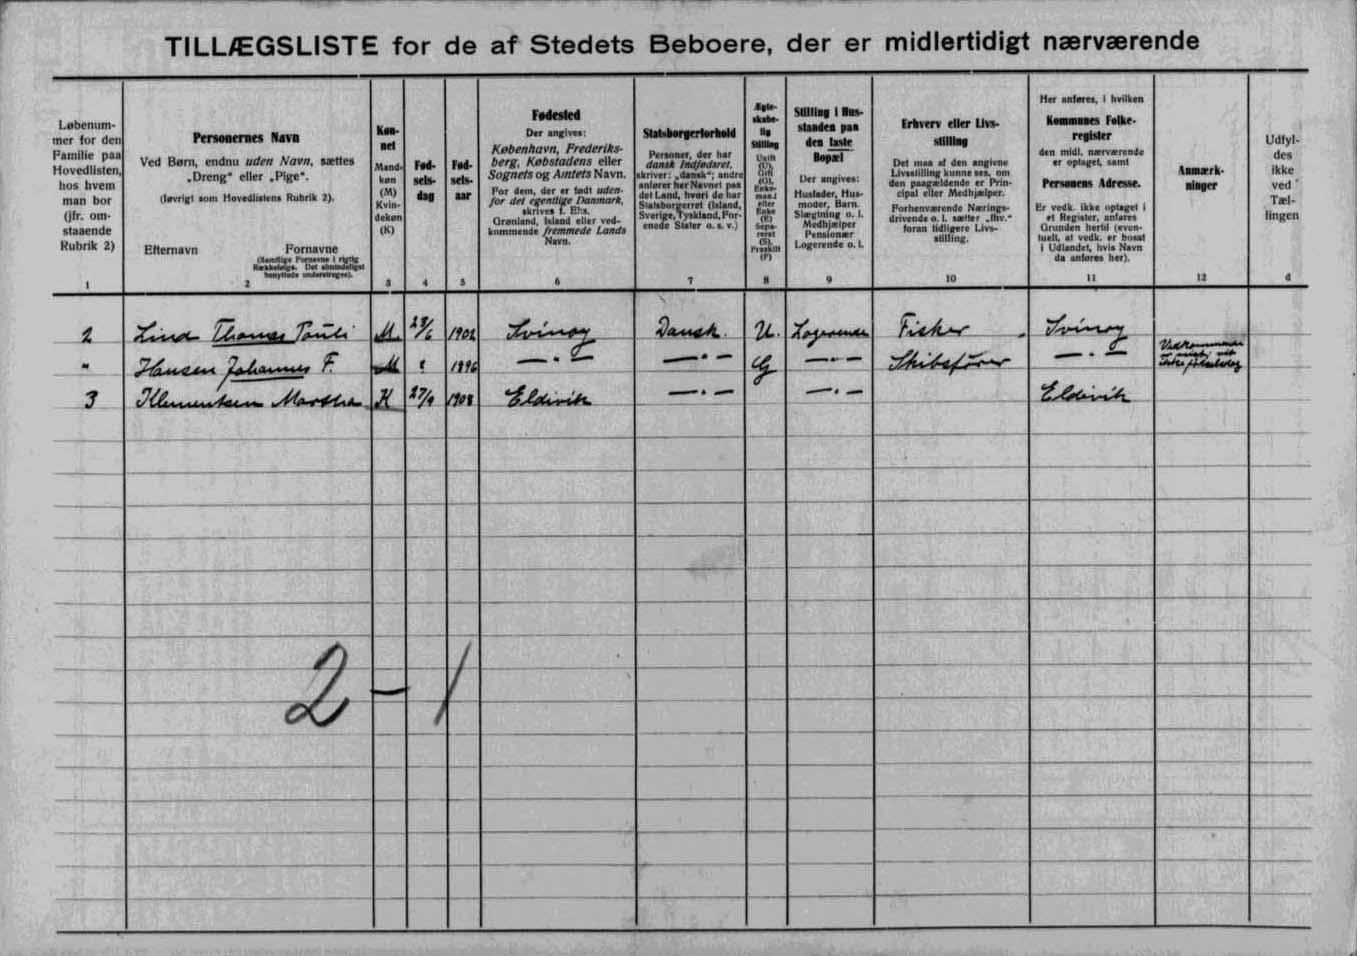 TILLÆGSLISTE for de af Stedets Beboere, der er midlertidigt nærværende
Løbenum-
mer for den
Familie paa
Hovedlisten,
hos hvem
man bor
(jfr. om-
staaende
Rubrik 2)
1
Personernes Navn
Ved Børn, endnu uden Navn, sættes
„Dreng“ eller „Pige“.
(Iøvrigt som Hovedlistens Rubrik 2).
Efternavn
Fornavne
(Samtlige Fornavne i rigtig
Rækkefølge. Det almindeligst
benyttede understreges).
2
Køn-
net
Mand-
køn
(M)
Kvin-
dekøn
(K)
3
Fød-
sels-
dag
4
Fød-
sels-
aar
5
Fødested
Der angives:
København, Frederiks-
berg, Købstadens eller
Sognets og Amtets Navn.
For dem, der er født uden-
for det egentlige Danmark,
skrives f. Eks.
Grønland, Island eller ved-
kommende fremmede Lands
Navn.
6
Statsborgerforhold
Personer, der har
dansk Indfødsret,
skriver: „dansk“; andre
anfører her Navnet paa
det Land, hvori de har
Statsborgerret (Island,
Sverige, Tyskland, For-
enede Stater o. s. v.)
7
Ægte-
skabe-
lig
Stilling
Ugift
(U),
Gift
(G),
Enke-
mand
eller
Enke
(E)
Sepa-
reret
(S),
Fraskilt
(F)
8
Stilling i Hus-
standen paa
den faste
Bopæl
Der angives:
Husfader, Hus-
moder, Barn,
Slægtning o. l.
Medhjælper
Pensionær
Logerende o. l.
9
Erhverv eller Livs-
stilling
Det maa af den angivne
Livsstilling kunne ses, om
den paagældende er Prin-
cipal eller Medhjælper.
Forhenværende Nærings-
drivende o. l. sætter „fhv.“
foran tidligere Livs-
stilling.
10
Her anføres, i hvilken
Kommunes Folke-
register
den midl. nærværende
er optaget, samt
Personens Adresse.
Er vedk. ikke optaget i
et Register, anføres
Grunden hertil (even-
tuelt, at vedk. er bosat
i Udlandet, hvis Navn
da anføres her).
11
Anmærk-
ninger
12
Udfyl-
des
ikke
ved
Tæl-
lingen
d
2 Lind Thomas Pauli M. 1902 Svinoy Dansk. U. Logerende Fisker Svinoy
" Hansen Johannes F. M 1896 —·— —·— G —·— Skibsfører —·—
3 Klementsen K 27/9 1908 Eldivik —·— —·— Eldivik
2 – 1